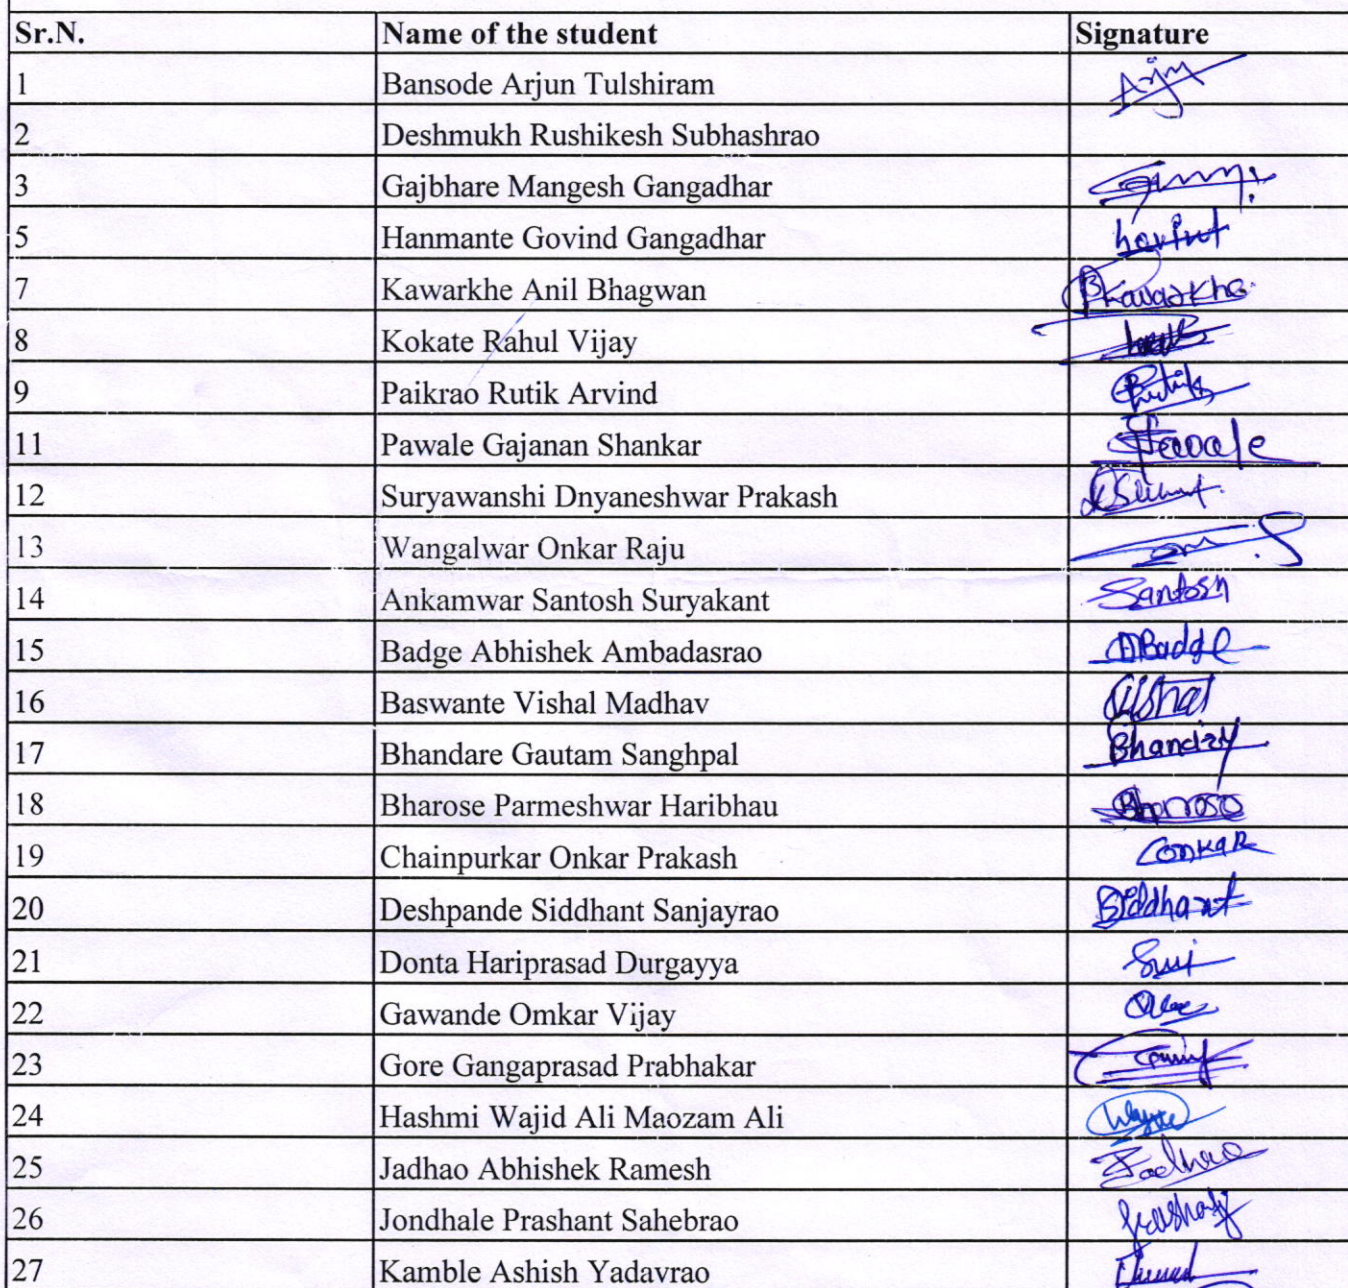 Sr.N. Name of the student Signature
1 Bansode Arjun Tulshiram Arjun
2 Deshmukh Rushikesh Subhashrao
3 Gajbhare Mangesh Gangadhar
5 Hanmante Govind Gangadhar
7 Kawarkhe Anil Bhagwan Bkawarkhe
8 Kokate Rahul Vijay
9 Paikrao Rutik Arvind Rutik
11 Pawale Gajanan Shankar Pawale
12 Suryawanshi Dnyaneshwar Prakash
13 Wangalwar Onkar Raju
14 Ankamwar Santosh Suryakant Santosh
15 Badge Abhishek Ambadasrao ABadge
16 Baswante Vishal Madhav Vishal
17 Bhandare Gautam Sanghpal
18 Bharose Parmeshwar Haribhau Bharose
19 Chainpurkar Onkar Prakash ConkaR
20 Deshpande Siddhant Sanjayrao Siddhant
21 Donta Hariprasad Durgayya
22 Gawande Omkar Vijay
23 Gore Gangaprasad Prabhakar
24 Hashmi Wajid Ali Maozam Ali
25 Jadhao Abhishek Ramesh Jadhao
26 Jondhale Prashant Sahebrao
27 Kamble Ashish Yadavrao